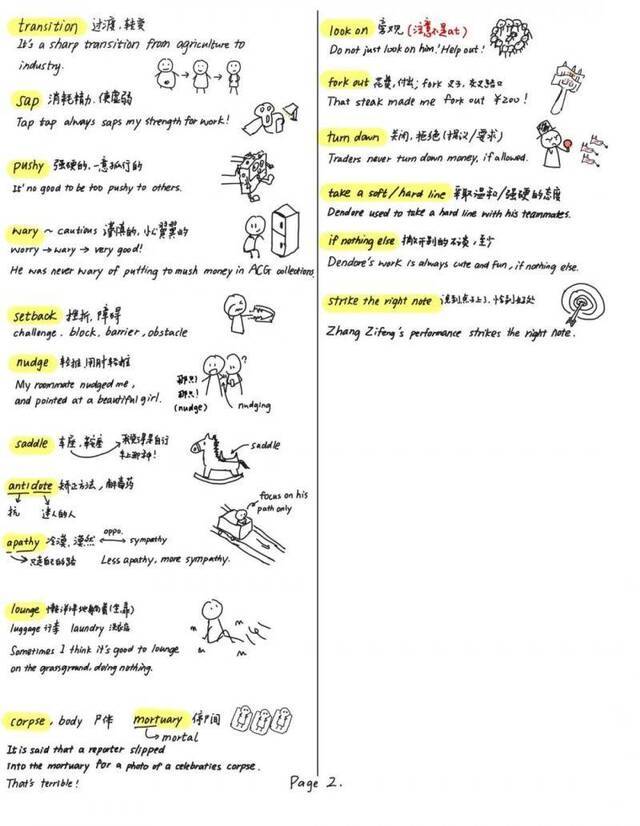 transition 过渡,转变
It's a sharp transition from agriculture to
industry.
sap 消耗精力,使虚弱
Tap tap always saps my strength for work!
pushy 强硬的,一意孤行的
It' no good to be too pushy to others.
wary ~ cautions 谨慎的,小心翼翼的
worry → wary → very good!
He was never wary of putting to mush money in ACG collections.
setback 挫折,障碍
challenge. block, barrier, obstacle
nudge 轻推,用肘轻推
My roommate nudged me,
and pointed at a beautiful girl.
那只!
那只!
(nudge)
?
nudging
saddle 车座,鞍座
我觉得是自行
车上那种!
saddle
antidote 矫正方法,解毒药
抗 迷人的人
focus on his
path only
apathy 冷漠,漠然 oppo. sympathy
只走自己的路 Less apathy, more sympathy.
lounge 懒洋洋地躺着(坐靠)
luggage 行李 laundry 洗衣店
Sometimes I think it's good to lounge
on the grassground, doing nothing.
corpse, body 尸体 mortuary 停尸间
mortal
It is said that a reporter slipped
into the mortuary for a photo of a celebraties corpse.
That's terrible!
look on 旁观 (注意不是at)
Do not just look on him! Help out!
fork out 花费,付出; fork 叉子,分叉路口
That steak made me fork out ¥200!
turn down 关闭,拒绝(提议/要求)
Traders never turn down money, if allowed.
take a soft/hard line 采取温和/强硬的态度
Dendore used to take a hard line with his teammates.
if nothing else 撇开别的不谈,至少
Dendore's work is always cute and fun, if nothing else.
strike the right note 说到点子上,恰到好处
Zhang Zifeng's performance strikes the right note.
Page 2.